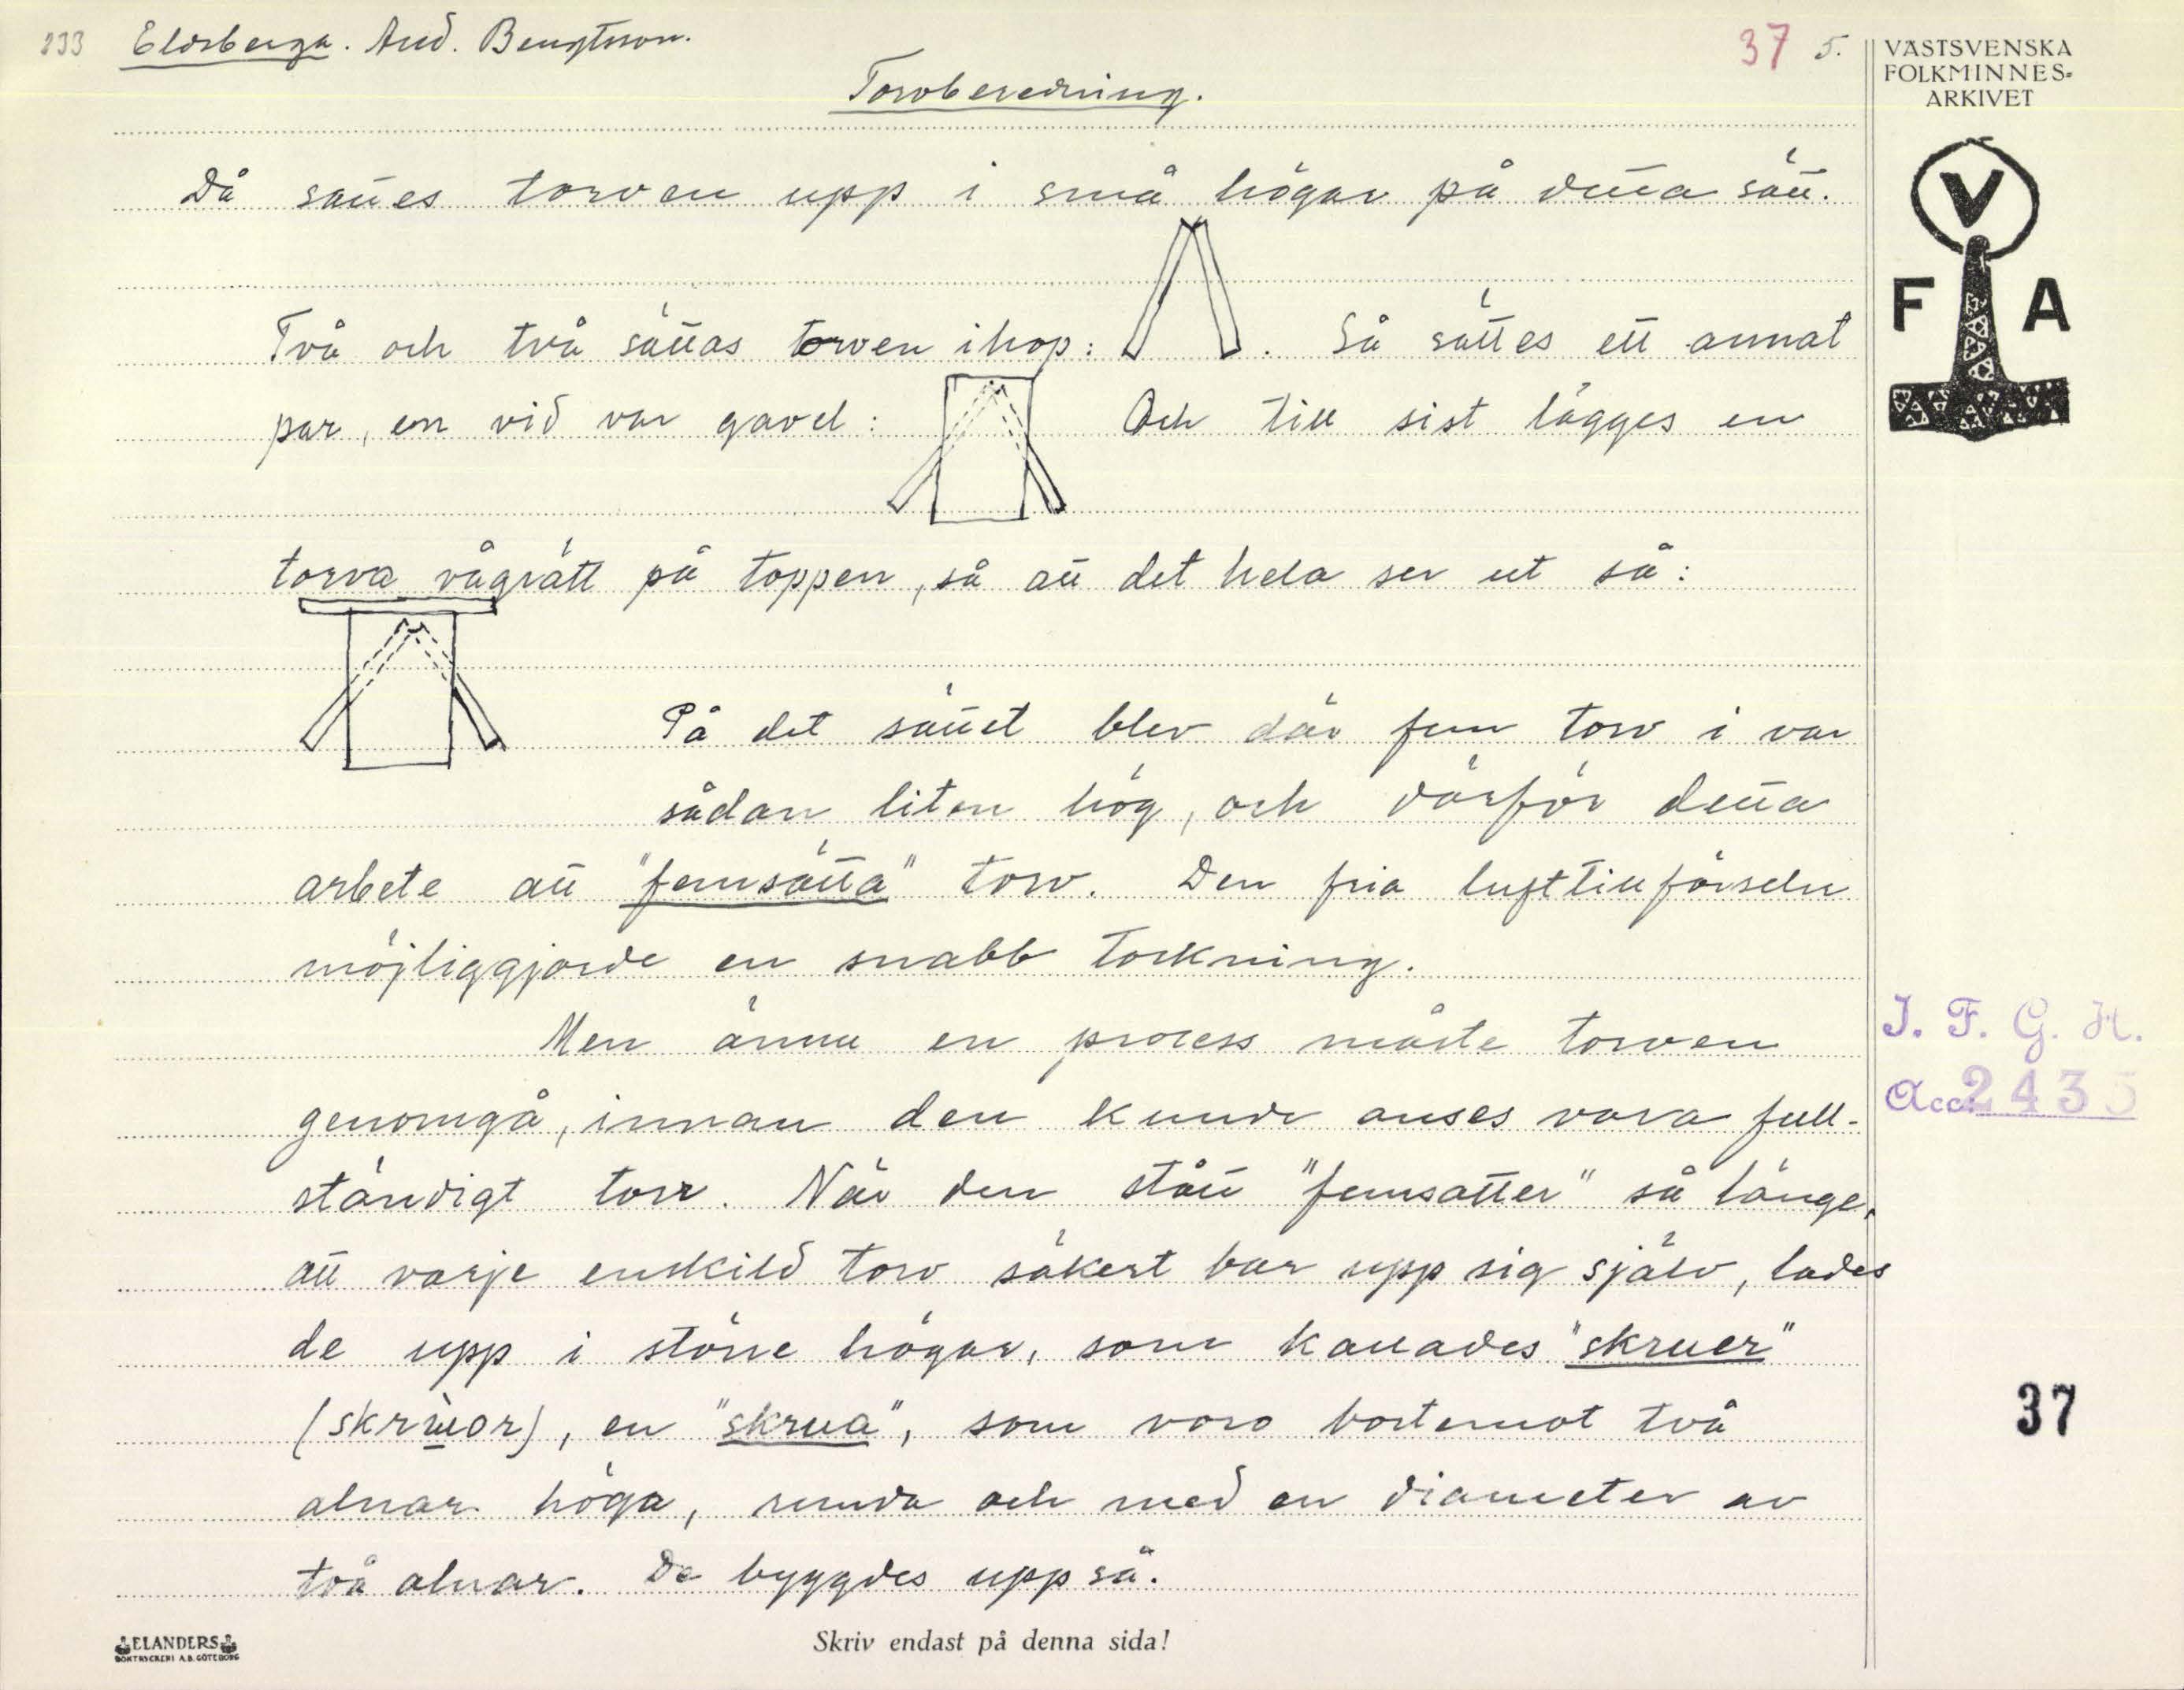 233 Eldsberga. And. Bengtsson. 37 5.
VÄSTSVENSKA
FOLKMINNES-
ARKIVET
Torvberedning.
Då sättes torven upp i små högar på detta sätt.
V
F A
Två och två sättas torven ihop: . Så sättes ett annat
par, en vid var gavel: Och till sist lägges en
torva vågrätt på toppen, så att det hela ser ut så:
På det sättet blev där fem torv i var
sådan liten hög, och därför detta
arbete att "femsätta" torv. Den fria lufttillförseln
möjliggjorde en snabb torkning.
Men ännu en process måste torven
genomgå, innan den kunde anses vara full-
ständigt torr. När den stått "femsatter" så länge,
att varje enskild torv säkert bar upp sig själv, lades
de upp i större högar, som kallades "skruer"
(skrùor), en "skrua", som voro bortemot två
alnar höga, runda och med en diameter av
två alnar. De byggdes upp så.
I. F. G. H.
Acc. 2435
37
ELANDERS
BOKTRYCKERI A.B. GÖTEBORG
Skriv endast på denna sida!